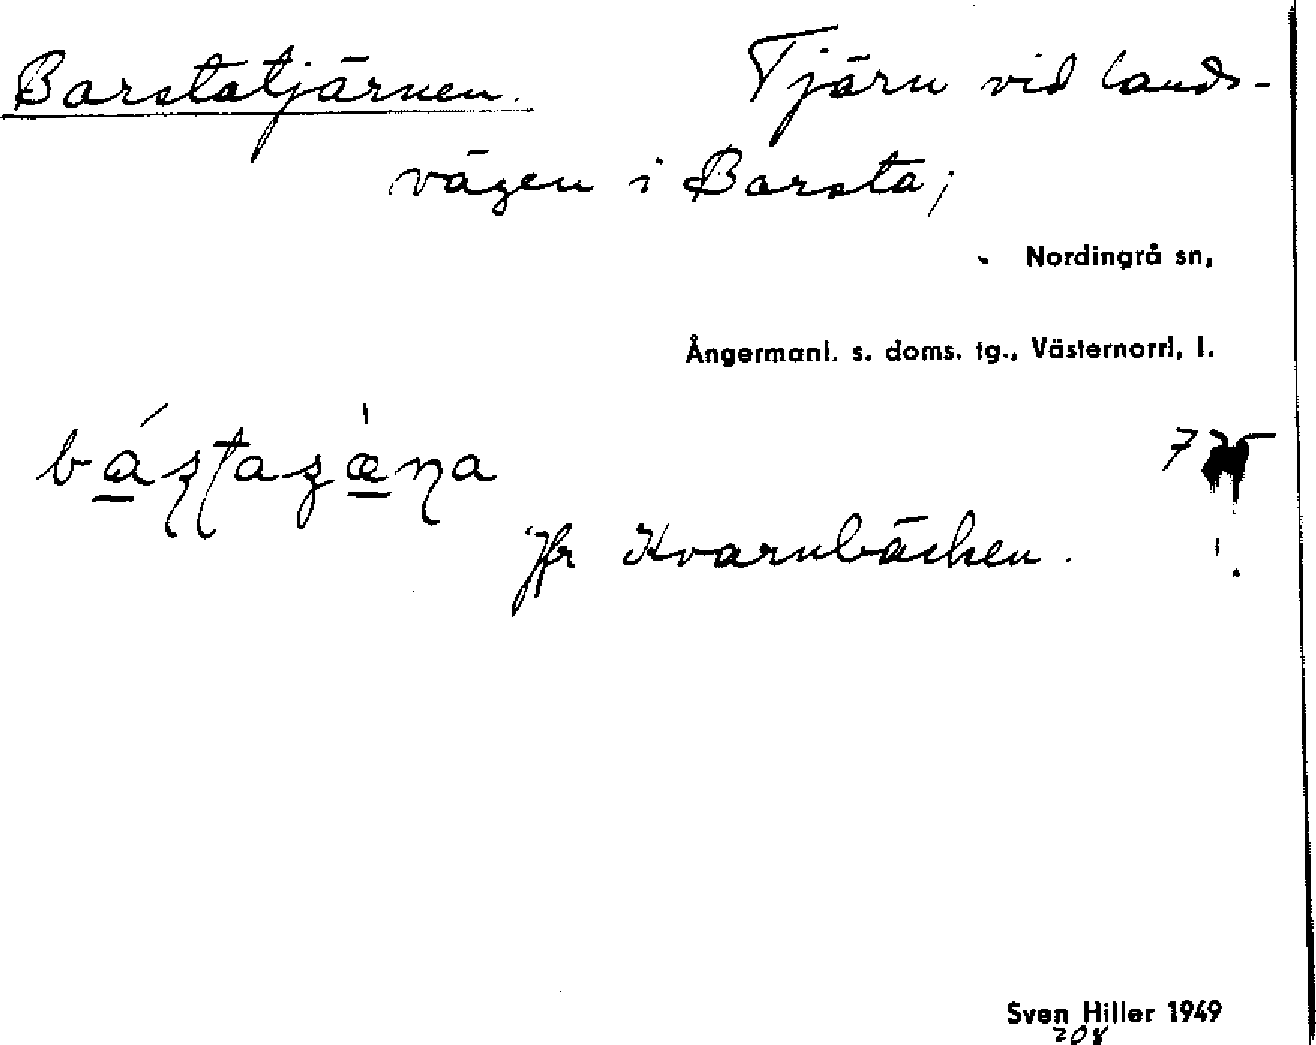 Barstatjärnen. Tjärn vid lands-
vägen i Barsta;
Nordingrå sn,
Ångermanl. s. doms. tg., Västernorrl. l.
Jfr Kvarnbäcken.
Sven Hiller 1949
208